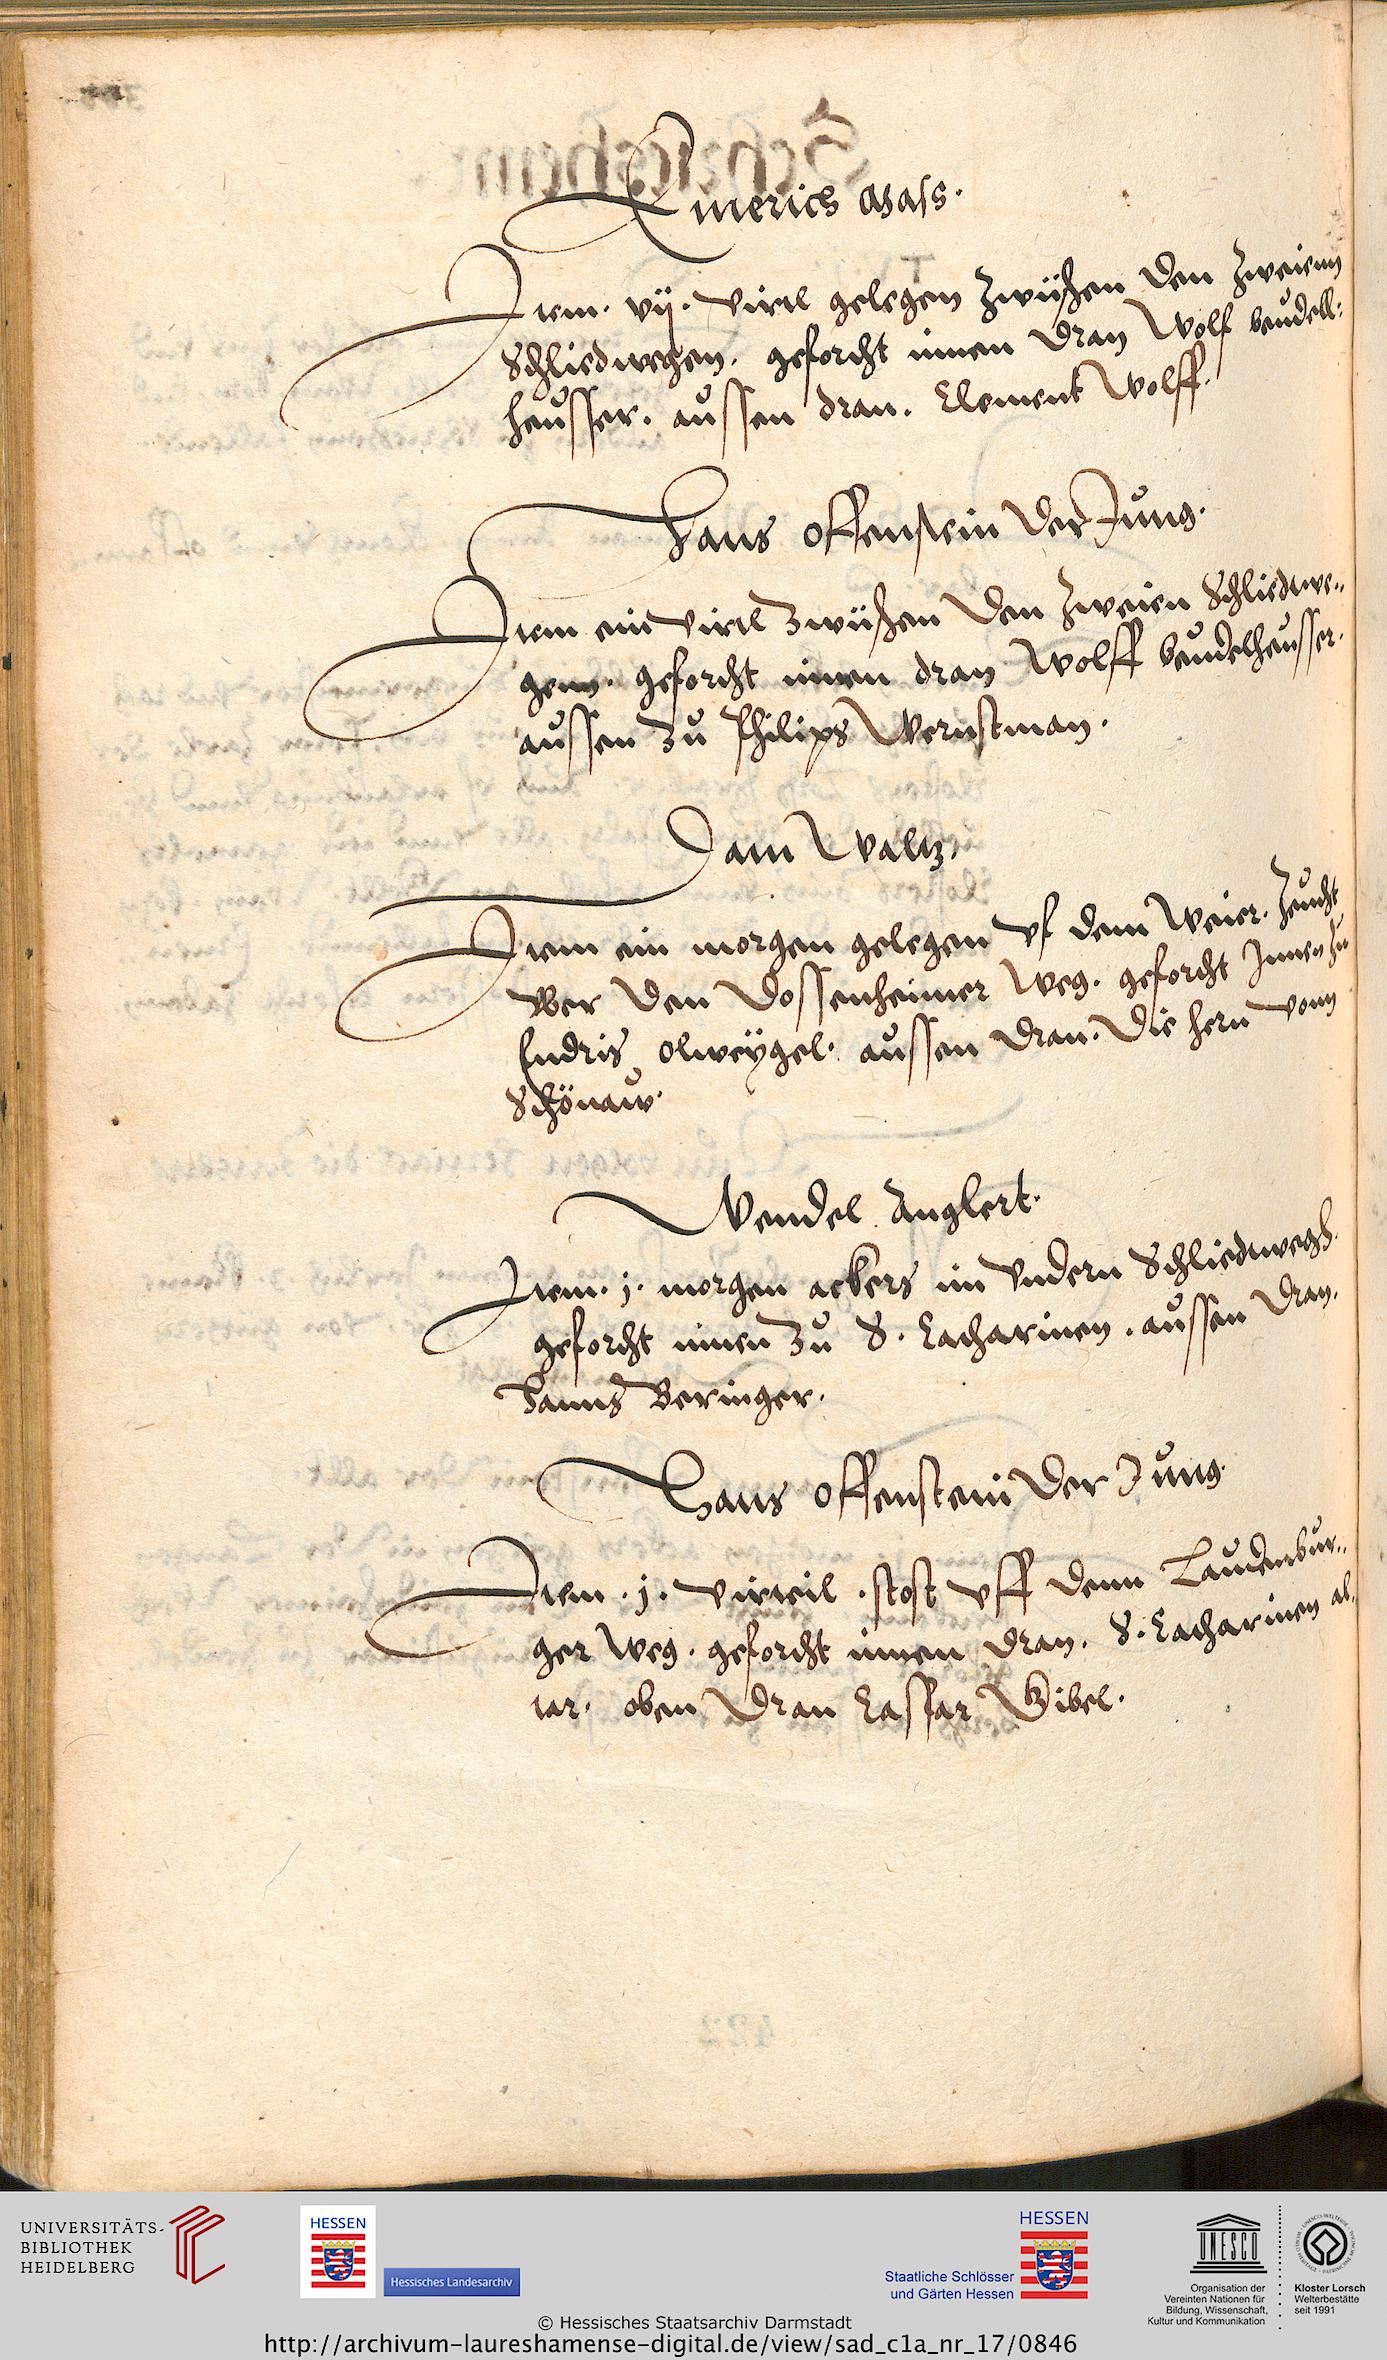 Emerich Mass.
Item. vij. virtl gelegen zwüschen den zweienn
Schliedwegen. geforcht innen dran Wolf beudell:
heusser. aussen dran. Clement Wolff.
Hans offenstein der Jung.
Item ein virtl zwüschen den zweien Schliedwe..
genn. geforcht innen dran Wolff beudelheusser.
aussen zu Philips Wernstman.
Dam Waltz.
Item ein morgen gelegen vf dem Weier. zeucht
vber den Dossenheimer Weg. geforcht Innen zu
Endris olweÿgel. aussen dran. Die hern vonn
Schönaw.
Wendel Anglert.
Item. j. morgen ackers im vndern Schliedwegh.
geforcht innen zu S. Catharinen. aussen dran.
Hanns Beringer.
Hans offenstein der Jung.
Item. j. virteil. stost vff denn Laudenbur..
ger Weg. geforcht innen dran. S. Catharinen al,
tar. oben dran Caspar Gibel.
UNIVERSITÄTS-
BIBLIOTHEK
HEIDELBERG
HESSEN
Hessisches Landesarchiv
HESSEN
Staatliche Schlösser
und Gärten Hessen
UNESCO
Organisation der
Vereinten Nationen für
Bildung, Wissenschaft,
Kultur und Kommunikation
Kloster Lorsch
Welterbestätte
seit 1991
© Hessisches Staatsarchiv Darmstadt
http://archivum-laureshamense-digital.de/view/sad_c1a_nr_17/0846